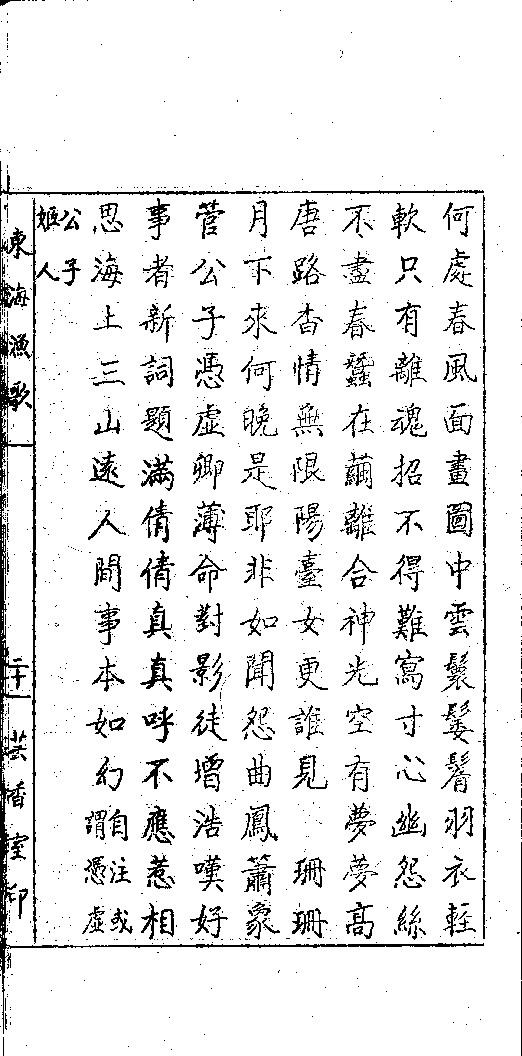 何處春風面畫圖中雲鬟鬖髾羽衣輕
軟只有離魂招不得難寫寸心幽怨絲
不盡春蠶在繭離合神光空有夢夢高
唐路杳情無限陽臺女更誰見　珊珊
月下來何晚是耶非如聞怨曲鳳簫象
管公子憑虛卿薄命對影徒增浩嘆好
事者新詞題滿倩倩真真呼不應惹相
思海上三山遠人間事本如幻自注或
謂憑虛
公子
姬人
東海漁歌
二十一
芸香室印